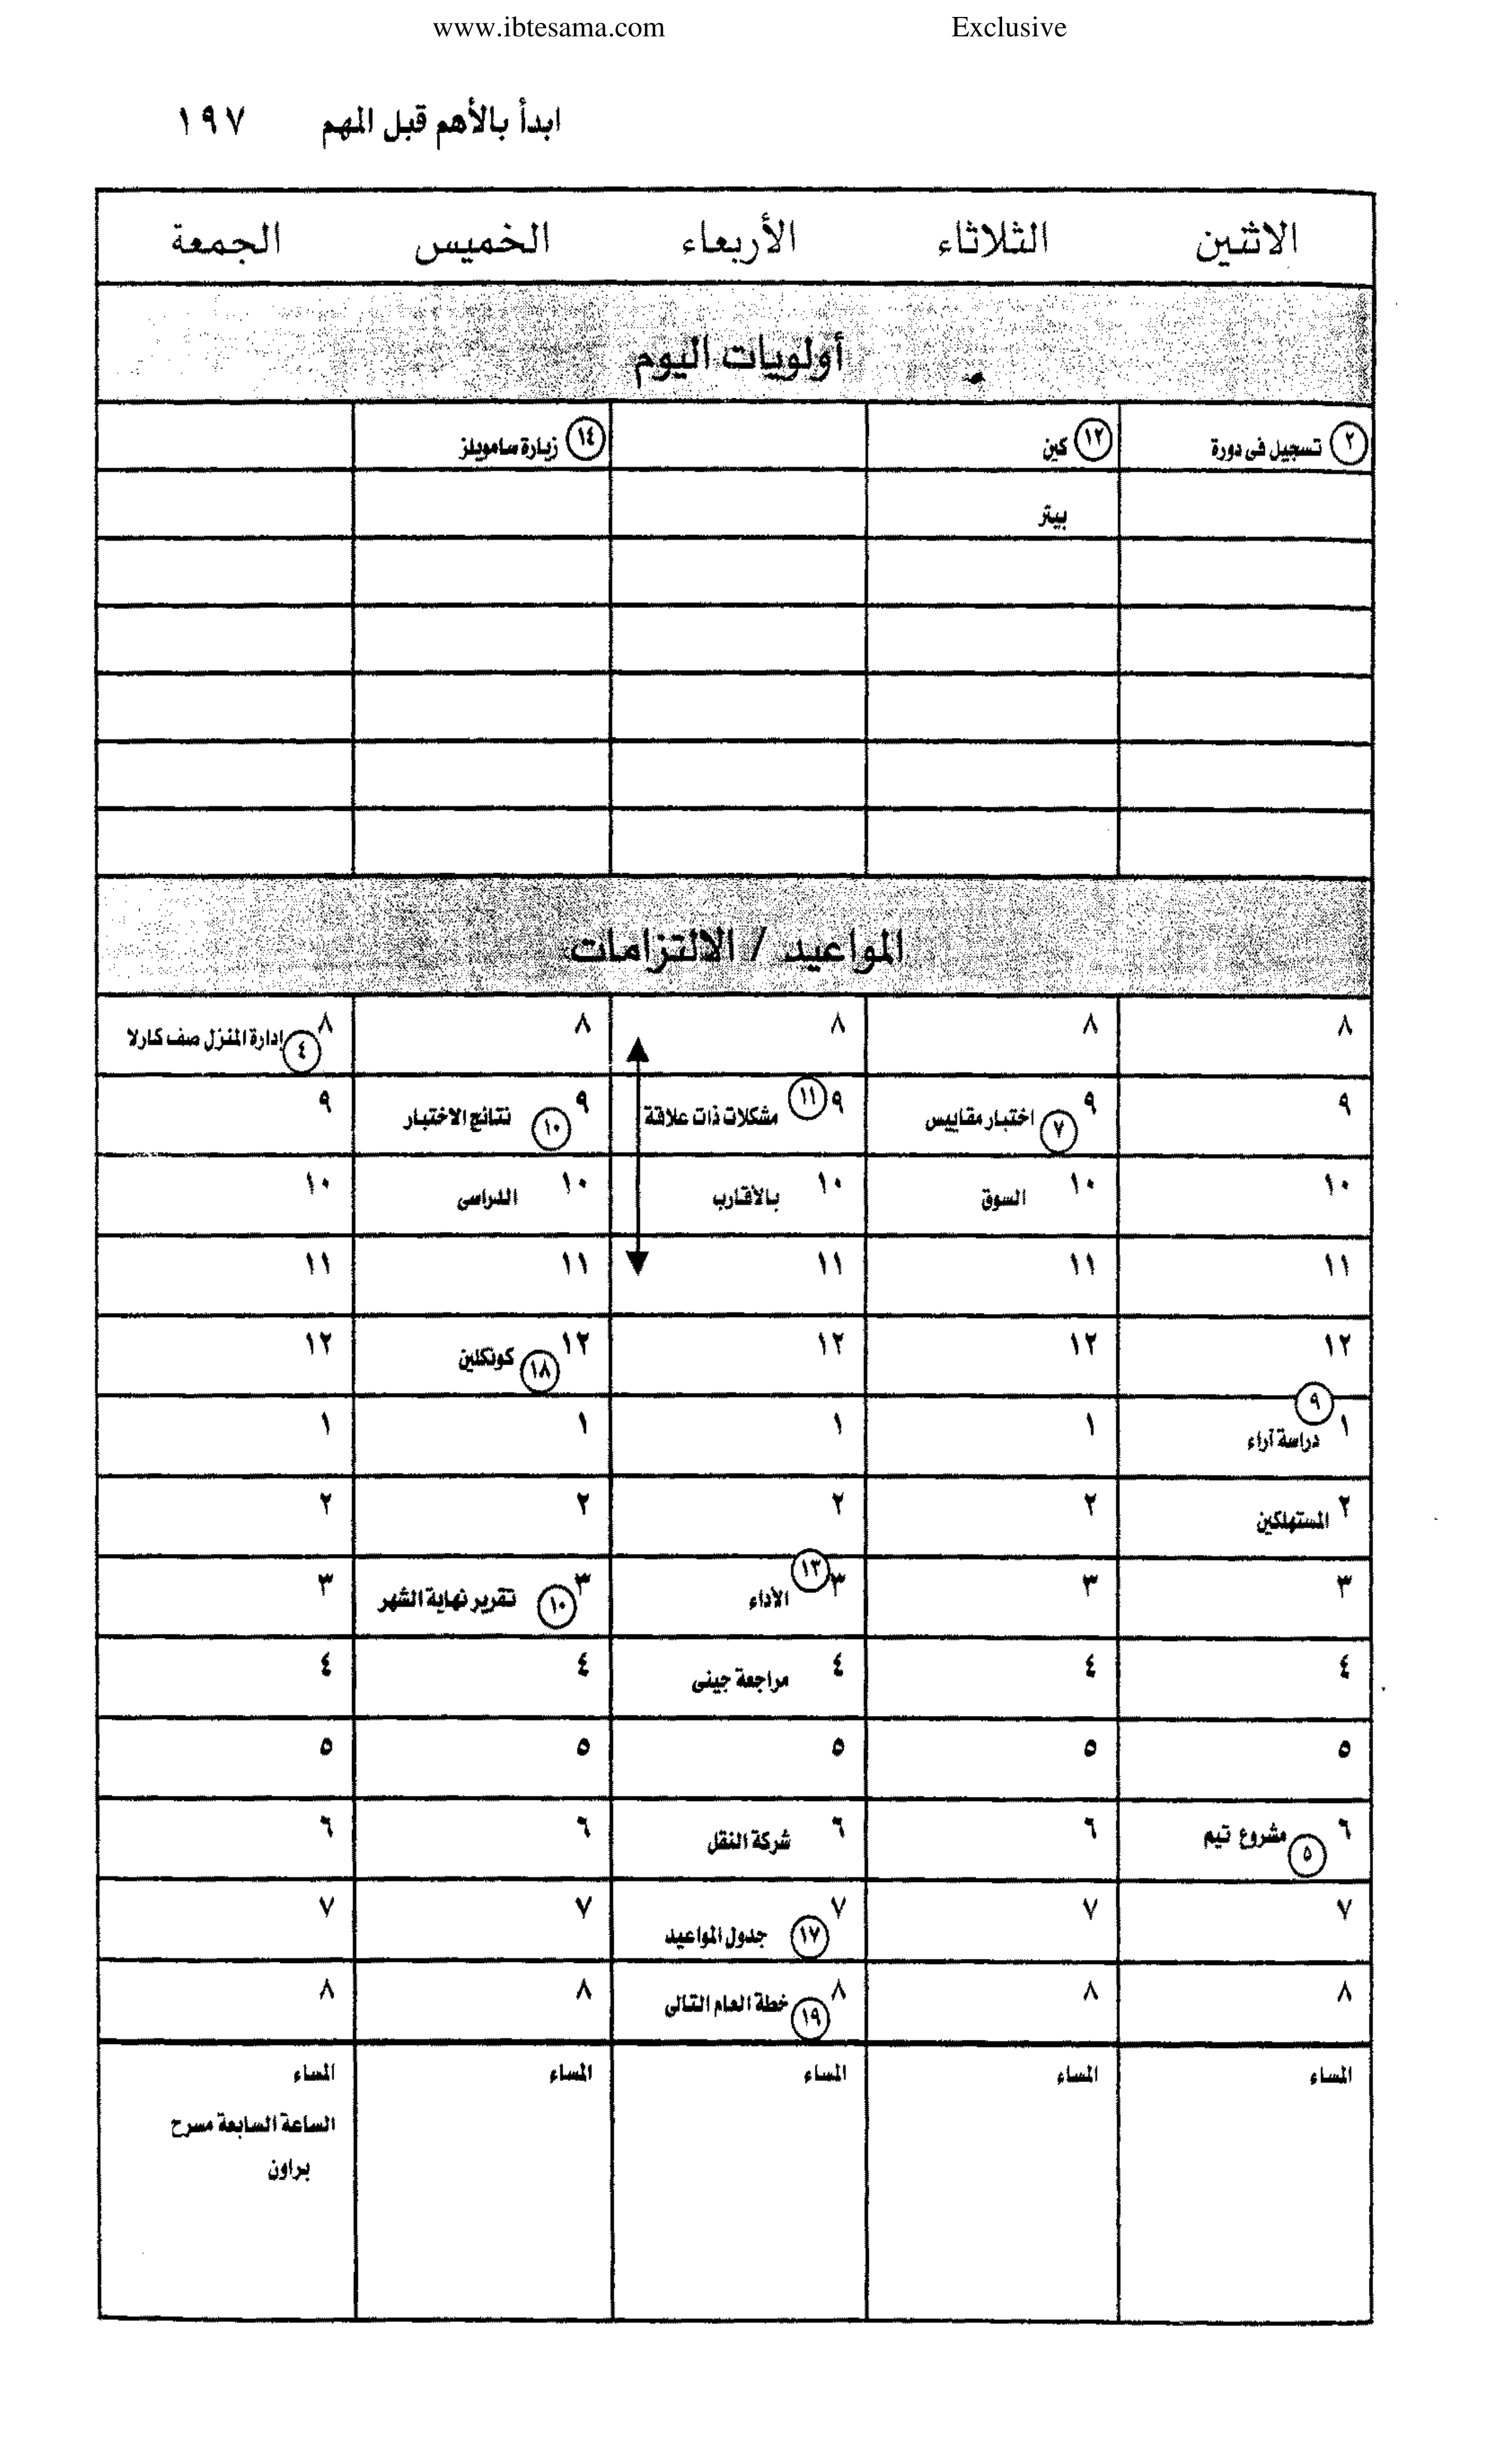 www.ibtesama.com Exclusive
ابدأ بالأهم قبل المهم ١٩٧
الاثنين الثلاثاء الأربعاء الخميس الجمعة
أولويات اليوم
٢ تسجيل فى دورة ١٢ كين ١٤ زيارة سامويلز
بيتر
المواعيد / الالتزامات
٨ ٨ ٨ ٨ ٨ ٤ إدارة المنزل صف كارلا
٩ ٩ ٧ اختبار مقاييس ٩ ١١ مشكلات ذات علاقة ٩ ١٠ نتائج الاختبار ٩
١٠ ١٠ السوق ١٠ بالأقارب ١٠ الدراسى ١٠
١١ ١١ ١١ ١١ ١١
١٢ ١٢ ١٢ ١٢ ١٨ كونكلين ١٢
١ ٩ دراسة آراء ١ ١ ١ ١
٢ المستهلكين ٢ ٢ ٢ ٢
٣ ٣ ٣ ١٣ الأداء ٣ ١٠ تقرير نهاية الشهر ٣
٤ ٤ ٤ مراجعة جينى ٤ ٤
٥ ٥ ٥ ٥ ٥
٦ ٥ مشروع تيم ٦ ٦ شركة النقل ٦ ٦
٧ ٧ ٧ ١٧ جدول المواعيد ٧ ٧
٨ ٨ ٨ ١٩ خطة العام التالى ٨ ٨
المساء المساء المساء المساء المساء
الساعة السابعة مسرح
براون